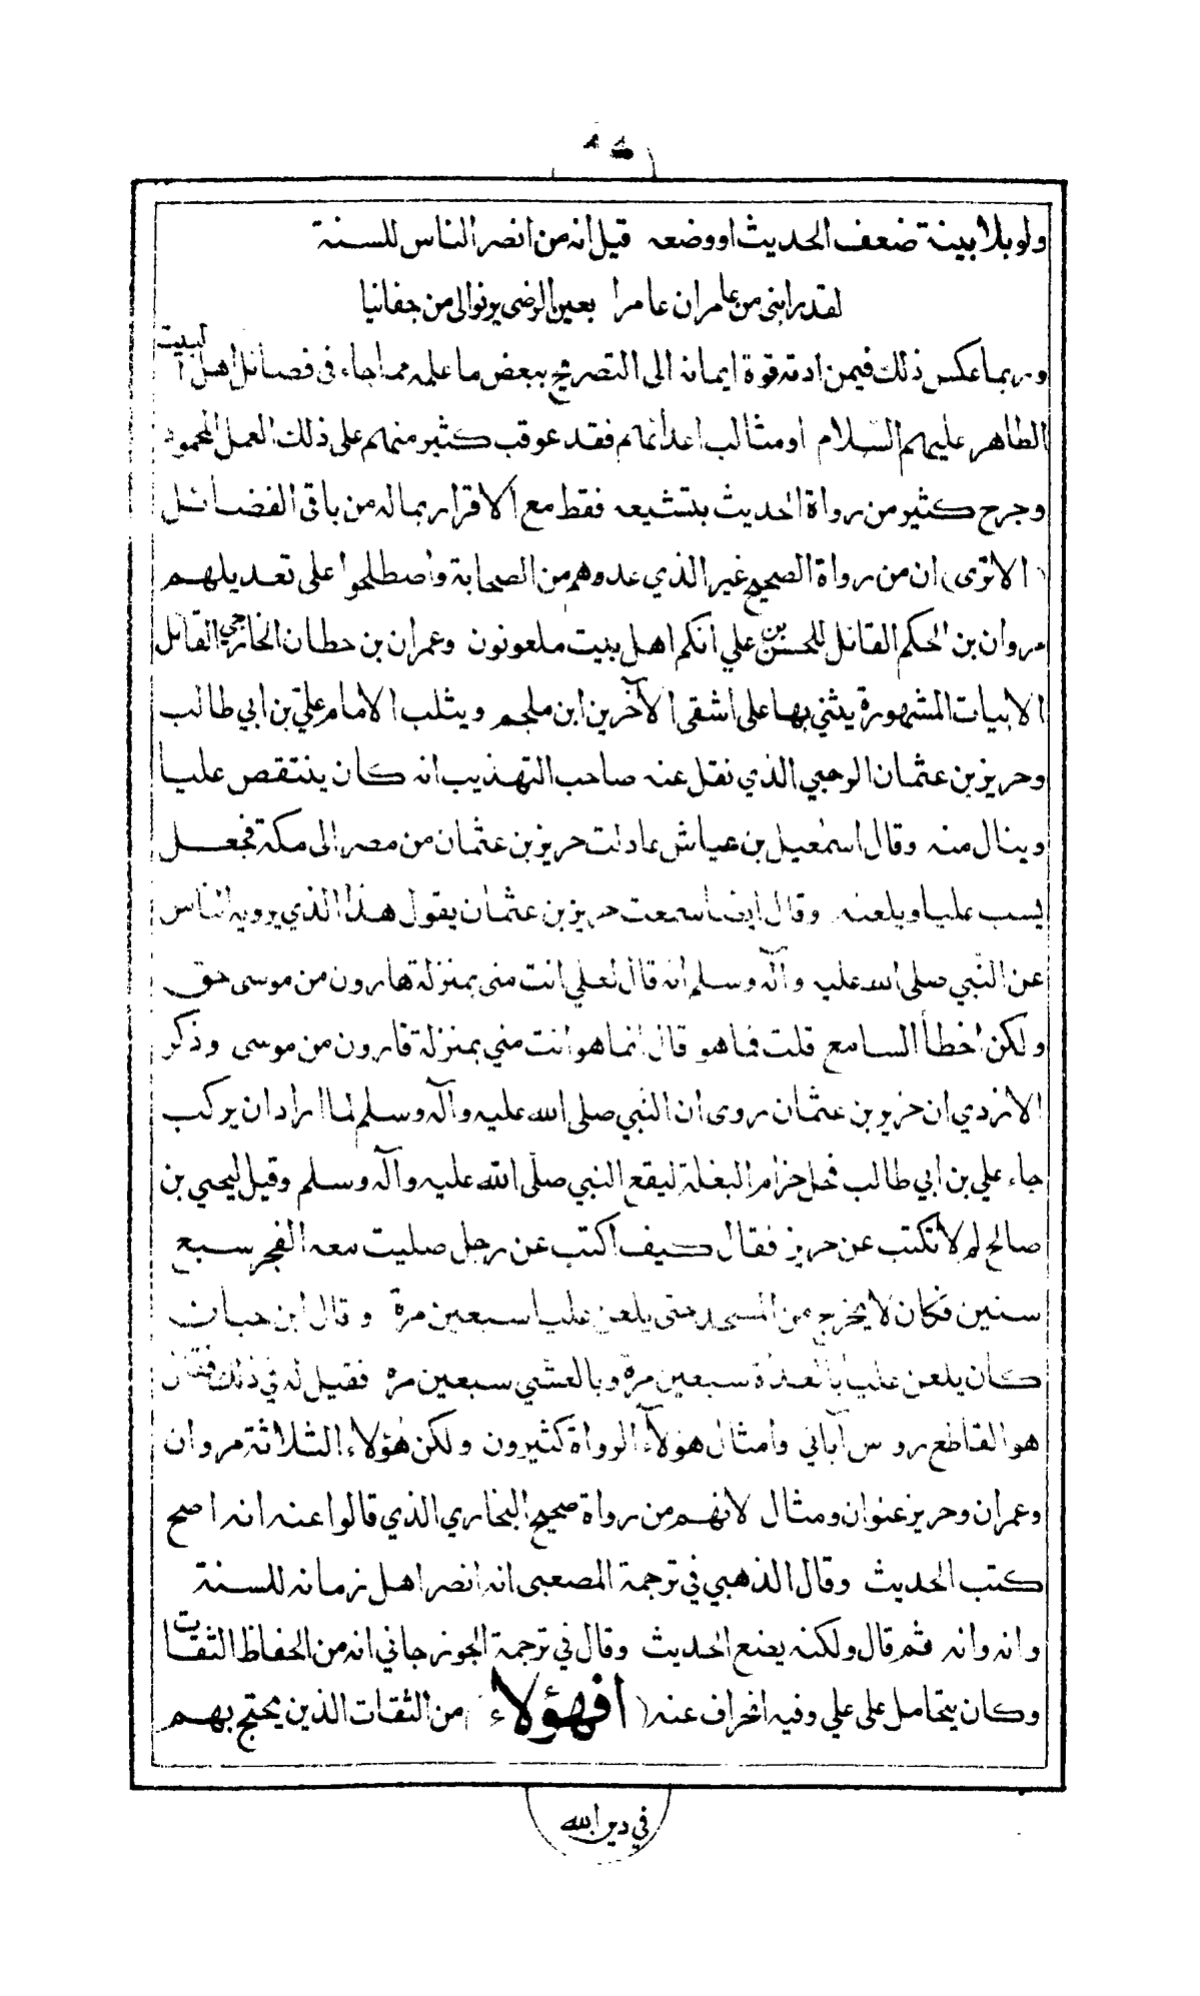 ولو بلا بينة ضعف الحديث او وضعه قيل انه من انصر الناس للسنة
لقد رابنى من عامر ان عامرا بعين الرضى يرنو الى من جفانيا
وربما عكس ذلك فيمن ادته قوة ايمانه الى التصريح ببعض ما علمه مما جاء فى فضائل اهل البيت
الطاهر عليهم السلام او مثالب اعدائهم فقد عوقب كثير منهم على ذلك العمل المحمود
وجرح كثير من رواة الحديث بتشيعه فقط مع الاقرار بماله من باقى الفضائل
(الا ترى) ان من رواة الصحيح غير الذي عدوهم من الصحابة واصطلحوا على تعديلهم
مروان بن الحكم القائل للحسن بن علي انكم اهل بيت ملعونون وعمران بن حطان الخارجي القائل
الابيات المشهورة يثني بها على اشقى الآخرين ابن ملجم ويثلب الامام علي بن ابي طالب
وحريز بن عثمان الرحبي الذي نقل عنه صاحب التهذيب انه كان ينتقص عليا
وينال منه وقال اسمعيل بن عياش عادلت حريز بن عثمان من مصر الى مكة فجعل
يسب عليا ويلعنه وقال ايضا سمعت حريز بن عثمان يقول هذا الذي يرويه الناس
عن النبي صلى الله عليه وآله وسلم انه قال لعلي انت منى بمنزلة هارون من موسى حق
ولكن اخطأ السامع قلت فما هو قال انما هو انت مني بمنزلة قارون من موسى وذكر
الازدي ان حريز بن عثمان روى ان النبي صلى الله عليه وآله وسلم لما اراد ان يركب
جاء علي بن ابي طالب فحل حزام البغلة ليقع النبي صلى الله عليه وآله وسلم وقيل ليحيي بن
صالح لم لا تكتب عن حريز فقال كيف اكتب عن رجل صليت معه الفجر سبع
سنين فكان لا يخرج من المسجد حتى يلعن عليا سبعين مرة وقال ابن حبان
كان يلعن عليا بالغداة سبعين مرة وبالعشي سبعين مرة فقيل له في ذلك فقال
هو القاطع روس آبائي وامثال هؤلآء الرواة كثيرون ولكن هؤلاء الثلاثة مروان
وعمران وحريز عنوان ومثال لانهم من رواة صحيح البخاري الذي قالوا عنه انه اصح
كتب الحديث وقال الذهبي في ترجمة المصعبى انه انصر اهل زمانه للسنة
وانه وانه ثم قال ولكنه يضع الحديث وقال في ترجمة الجوزجاني انه من الحفاظ الثقات
وكان يتحامل على علي وفيه انحراف عنه (افهؤلاء) من الثقات الذين يحتج بهم
في دين الله